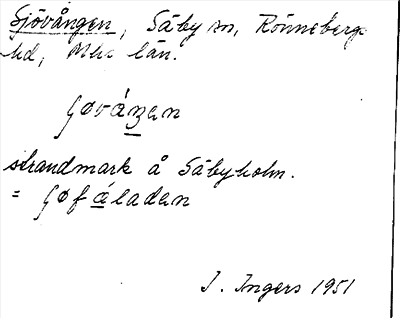 Sjövången, Säby sn, Rönneberga
hd, Mlh län.
ʃøvánen
strandmark å Säbyholm.
= ʃøfáladan
I. Ingers 1951